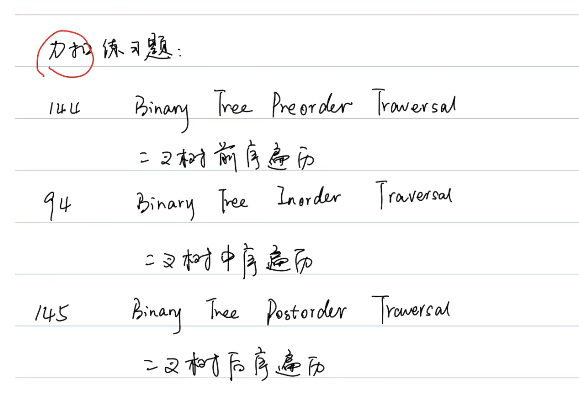 力扣练习题:
144 Binary Tree Preorder Traversal
二叉树前序遍历
94 Binary Tree Inorder Traversal
二叉树中序遍历
145 Binary Tree Postorder Traversal
二叉树后序遍历